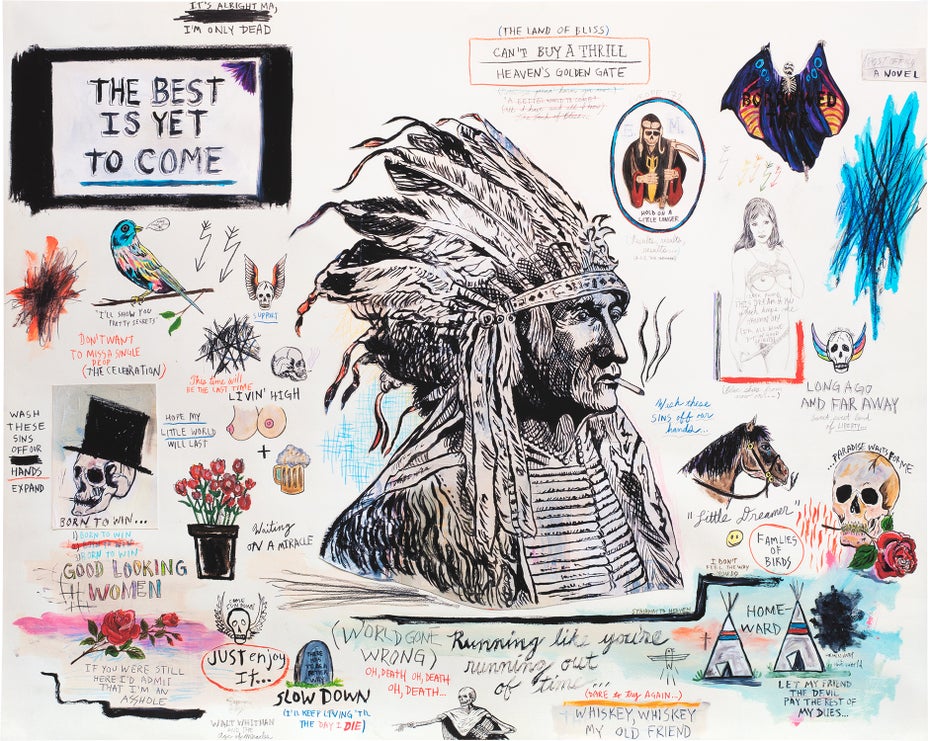 IT'S ALRIGHT MA,
I'M ONLY DEAD
THE BEST
IS YET
TO COME
(THE LAND OF BLISS)
CAN'T BUY A THRILL
HEAVEN'S GOLDEN GATE
A NOVEL
HOLD ON A
LITTLE LONGER
"I'LL SHOW YOU
PRETTY SECRETS"
SUPPORT
DON'T WANT
TO MISS A SINGLE
DROP
(THE CELEBRATION)
This time will
BE THE LAST TIME
LIVIN' HIGH
WASH
THESE
SINS
OFF OUR
HANDS
EXPAND
HOPE MY
LITTLE WORLD
WILL LAST
+
BORN TO WIN...
1) BORN TO WIN
2) BORN TO WIN
3) BORN TO WIN
GOOD LOOKING
WOMEN
Waiting
ON A MIRACLE
Wash these
SINS off our
hands...
LONG AGO
AND FAR AWAY
...PARADISE WAITS FOR ME
"Little Dreamer"
FAMLIES
OF
BIRDS
I DON'T
FEEL THE WAY
YOU DO
STAIRWAY TO HEAVEN
HOME-
WARD
LET MY FRIEND
THE DEVIL
PAY THE REST OF
MY DUES...
IF YOU WERE STILL
HERE I'D ADMIT
THAT I'M AN
ASSHOLE
JUST enjoy
IT...
SLOW DOWN
(I'LL KEEP LIVING 'TIL
THE DAY I DIE)
WALT WHITMAN
AND THE
(WORLD GONE
WRONG)
OH, DEATH OH, DEATH
OH, DEATH...
Running like you're
running out
of time...
(DARE to try AGAIN...)
WHISKEY, WHISKEY
MY OLD FRIEND